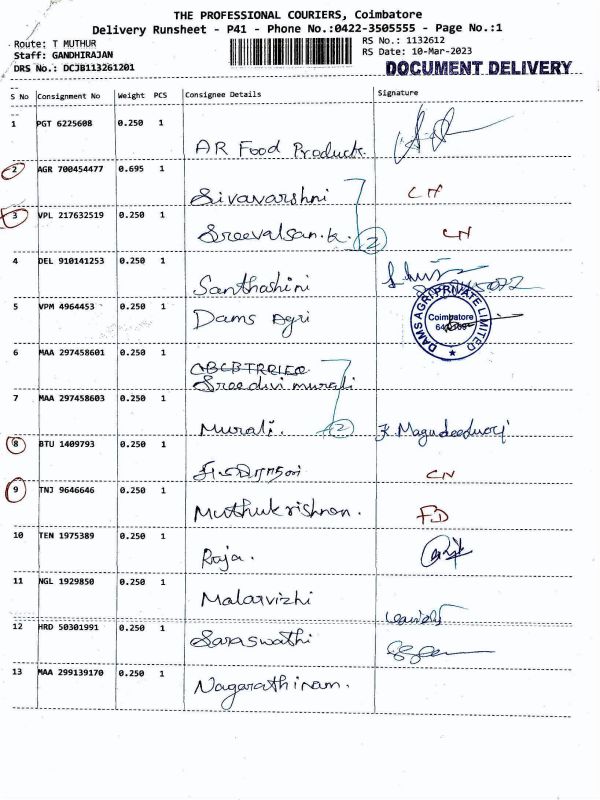 THE PROFESSIONAL COURIERS, Coimbatore
Delivery Runsheet - P41 - Phone No.:0422-3505555 - Page No.:1
Route: T MUTHUR
RS No.: 1132612
Staff: GANDHIRAJAN
RS Date: 10-Mar-2023
DRS No.: DCJB113261201
DOCUMENT DELIVERY
S No Consignment No Weight PCS Consignee Details Signature
1 PGT 6225608 0.250 1
AR Food Product
2 AGR 700454477 0.695 1
Sivavarshni CN
3 VPL 217632519 0.250 1
Sreevalsan.k. 2 CN
4 DEL 910141253 0.250 1
Santhoshini
5 VPM 4964453 0.250 1
Dams Agri
DAMS AGRI PRIVATE LIMITED
Coimbatore
6 MAA 297458601 0.250 1
Sreedivi murali
7 MAA 297458603 0.250 1
Murali. 2
8 BTU 1409793 0.250 1
CN
9 TNJ 9646646 0.250 1
Muthukrishnan. FD
10 TEN 1975389 0.250 1
Raja.
11 NGL 1929850 0.250 1
Malarvizhi
12 HRD 50301991 0.250 1
Saraswathi
13 MAA 299139170 0.250 1
Nagarathinam.